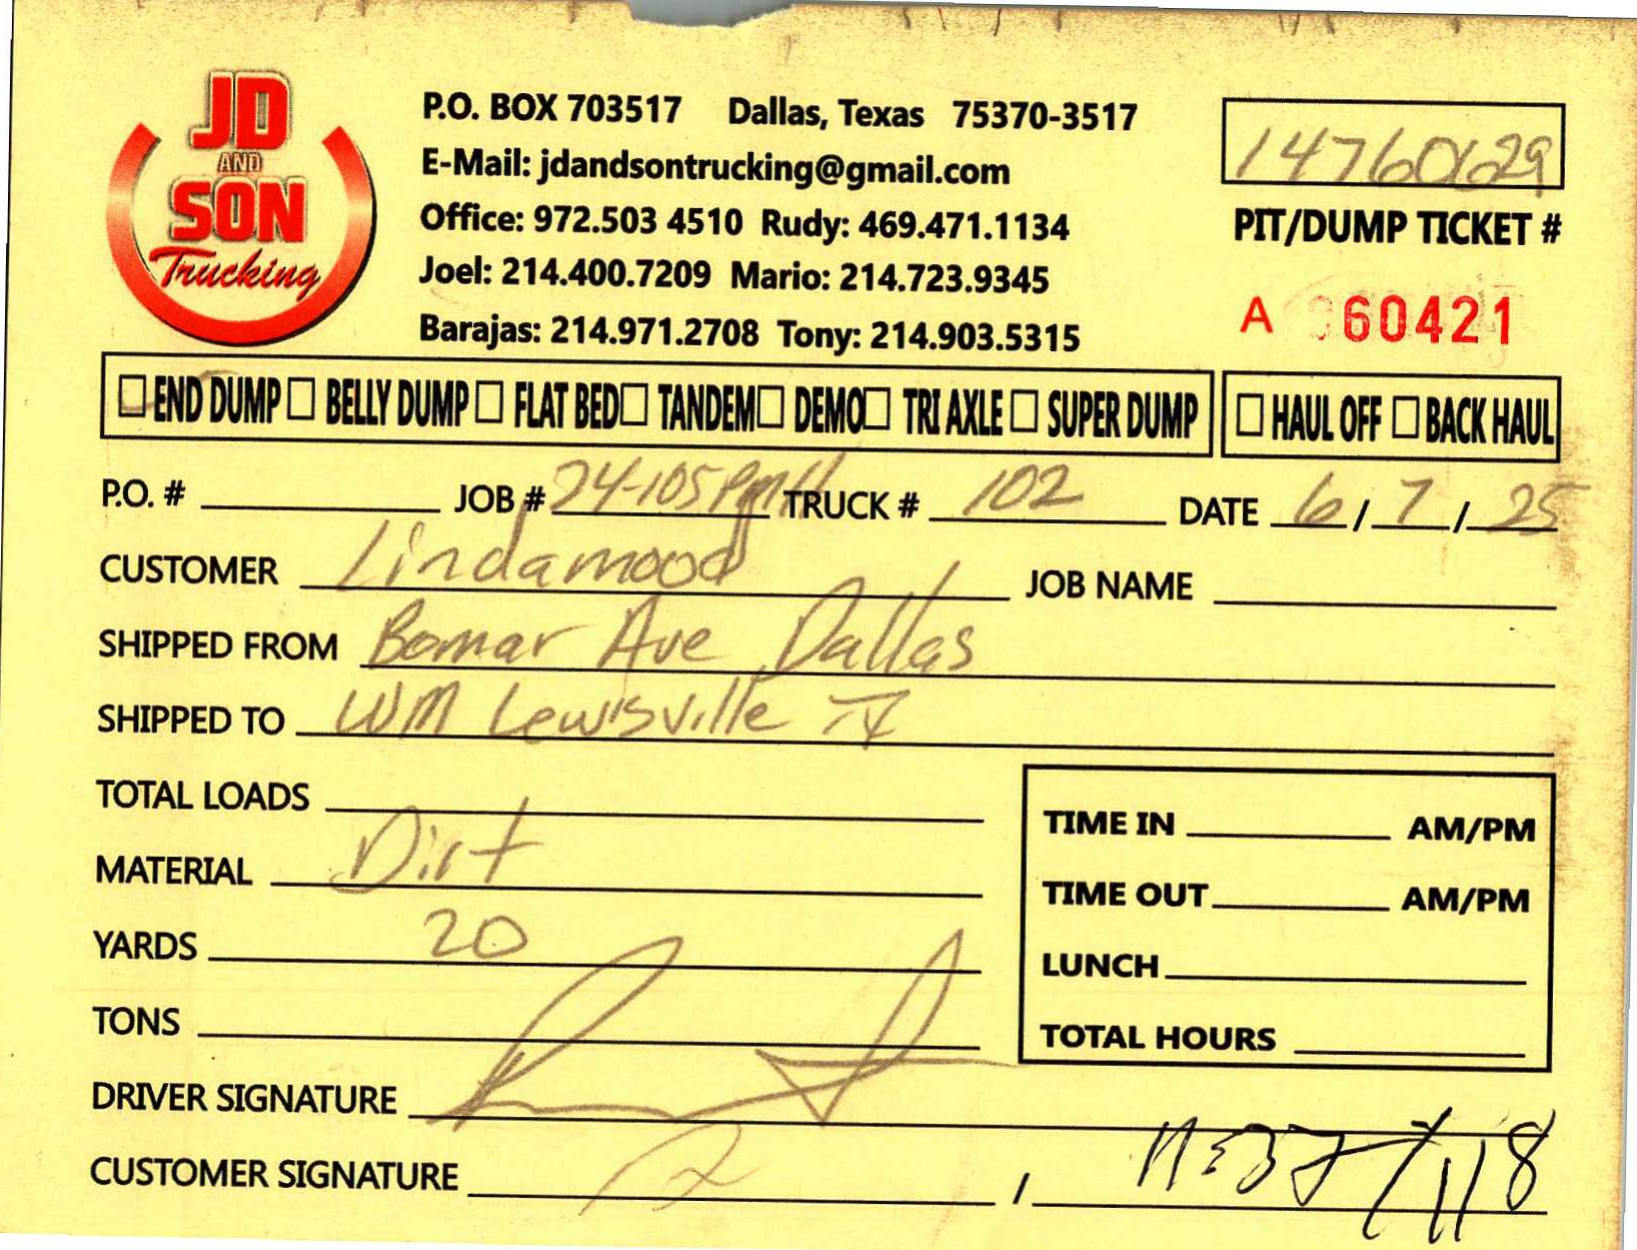 JD
AND
SON
Trucking
P.O. BOX 703517 Dallas, Texas 75370-3517
E-Mail: jdandsontrucking@gmail.com
Office: 972.503 4510 Rudy: 469.471.1134
Joel: 214.400.7209 Mario: 214.723.9345
Barajas: 214.971.2708 Tony: 214.903.5315
14760629
PIT/DUMP TICKET #
A 60421
☐ END DUMP ☐ BELLY DUMP ☐ FLAT BED ☐ TANDEM ☐ DEMO ☐ TRI AXLE ☐ SUPER DUMP ☐ HAUL OFF ☐ BACK HAUL
P.O. # JOB # 24-105 TRUCK # 102 DATE 6/7/25
CUSTOMER Lindamood JOB NAME
SHIPPED FROM Bomar Ave Dallas
SHIPPED TO WM Lewisville TX
TOTAL LOADS
MATERIAL Dirt
YARDS 20
TONS
TIME IN AM/PM
TIME OUT AM/PM
LUNCH
TOTAL HOURS
DRIVER SIGNATURE
CUSTOMER SIGNATURE /